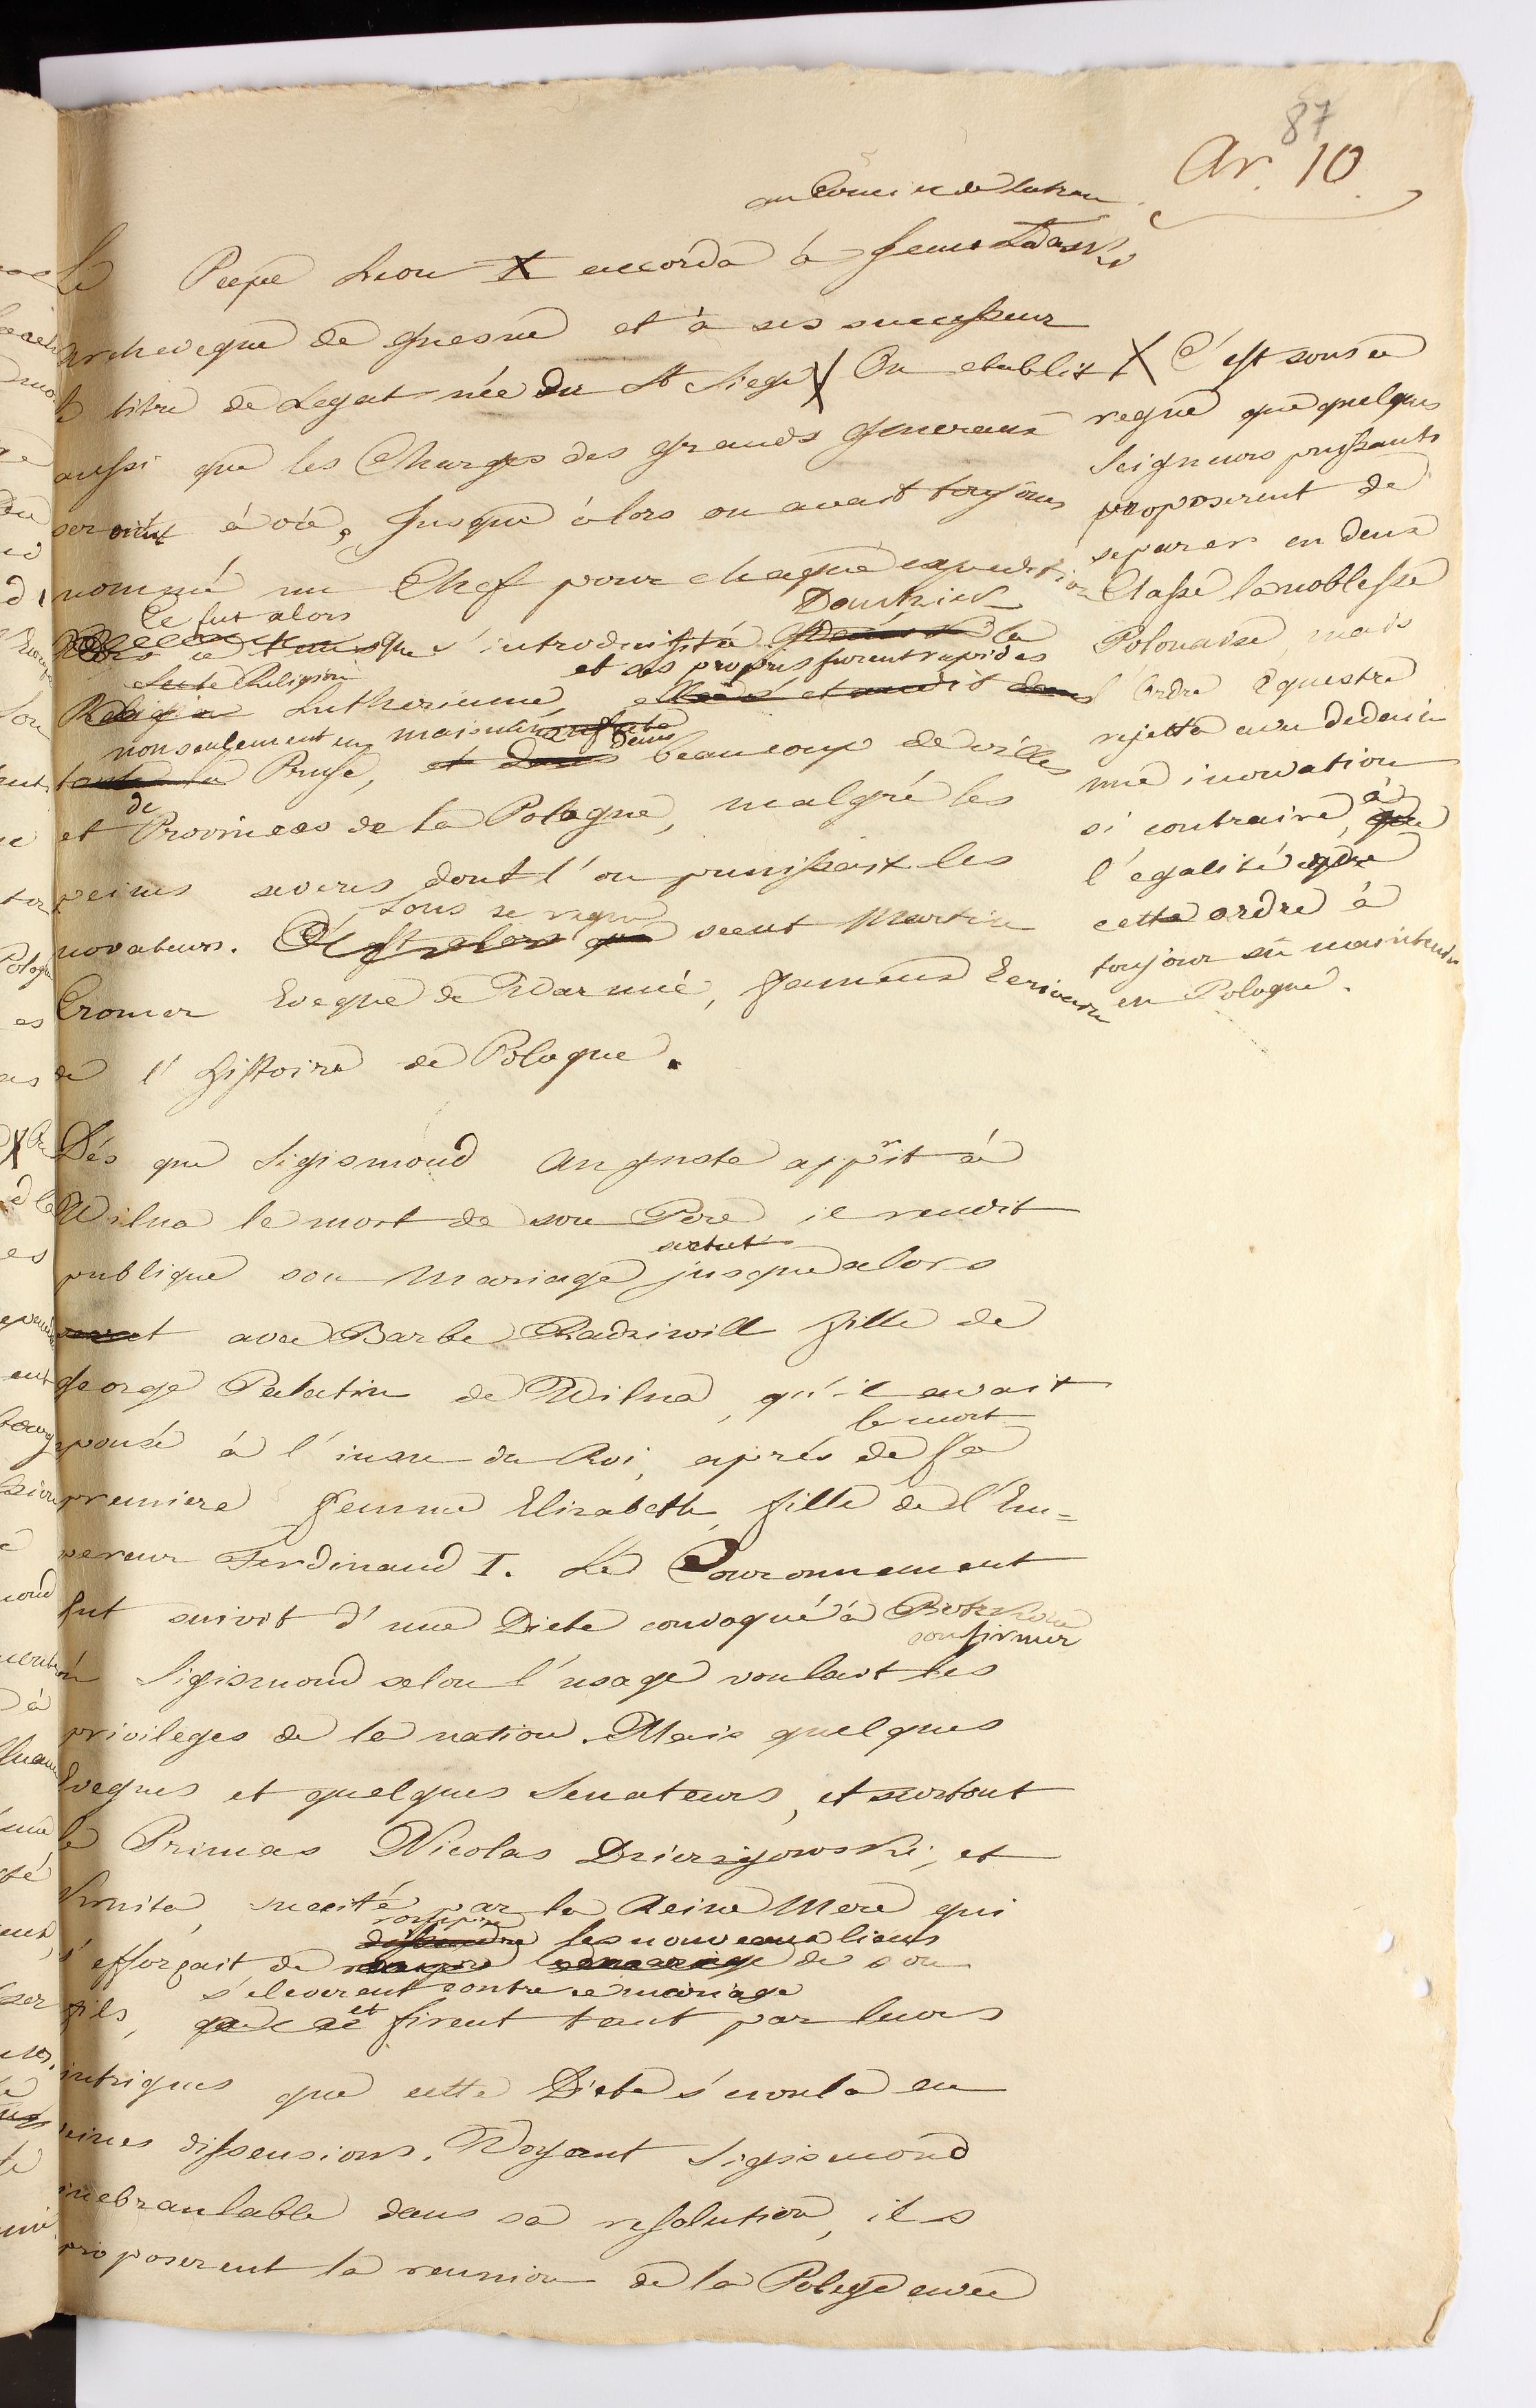 87
Ar. 10
au Concile de Latran
Le Pape Leon X accorda à Jean Łaski
Archeveque de Gnesne et à ses successeur
le titre de Legat née du St Siege X On etablit
aussi que les Charges des grands Generaux
seroient à vie, jusque àlors on avait toujours
nommé un Chef pour chaque expedition
Ce fut alors
que s'introduisit à Dantzick la
Secte Religion et ses progres furent rapides
Lutherienne,
non seulement en maintenant dans
toute la Pruse, et dans beaucoup de villes
et de Provinces de la Pologne, malgré les
peines severes dont l'on punissait les
sous ce regne
novateurs. C'est alors que vecut Martin
Cromer Eveque de Warmie, fameux Ecrivain
de l'Histoire de Pologne.
X C'est sous ce
regne que quelques
Seigneurs puissants
proposerent de
separer en deux
Classe la noblesse
Polonaise, mais
l'ordre Equestre
rejetta avec dedain
une inovation
si contraire, à que
l'egalité que
cette ordre à
toujour sû maintenir
en Pologne.
Dés que Sigismond Auguste apprit à
Wilna la mort de son Pere il rendit
secret
publique son Mariage jusque alors
secret avec Barbe Radziwill fille de
George Palatin de Wilna, qu'il avait
la mort
epousé à l'insu du Roi, aprés de sa
premiere femme Elizabeth, fille de l'Em=
pereur Ferdinand I. Le Couronnement
fut suivit d'une Diete convoqué à Piotrkow
confirmer
où Sigismond selon l'usage voulait les
privileges de la nation. Mais quelques
Eveques et quelques Senateurs, et surtout
le Primas Nicolas Dzierzgowski, et
Kmita, suscité par la Reine Mere qui
rompre
dissoudre les nouveaux liens
s'efforçait de rompre le mariage de son
s'eleverent contre ce mariage
fils, et firent tant par leurs
intrigues que cette Diete s'ecoula en
vaines dissensions. Voyant Sigismond
inebranlable dans sa resolution, ils
proposerent la reunion de la Pologne avec